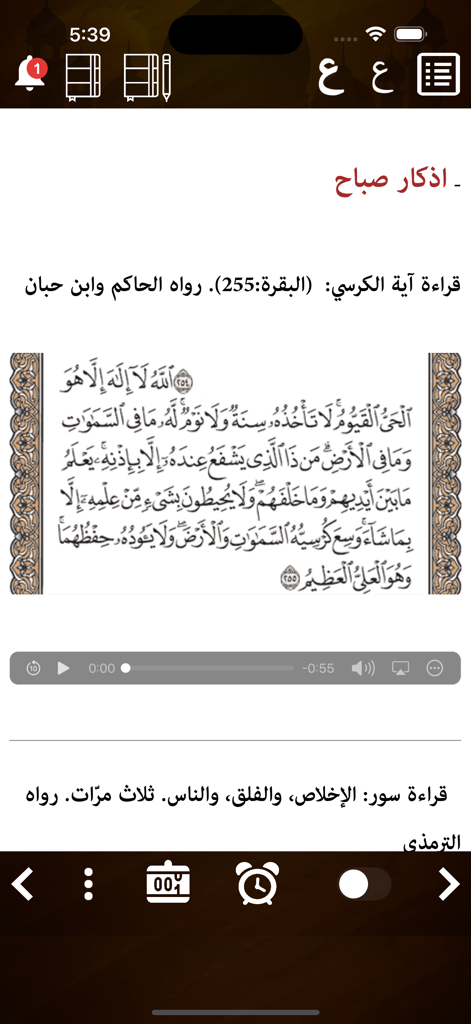 5:39
1
ع ع
- اذكار صباح
قراءة آية الكرسي: (البقرة:255). رواه الحاكم وابن حبان
٢٥٤ ٱللَّهُ لَآ إِلَٰهَ إِلَّا هُوَ
ٱلۡحَيُّ ٱلۡقَيُّومُۚ لَا تَأۡخُذُهُۥ سِنَةٞ وَلَا نَوۡمٞۚ لَّهُۥ مَا فِي ٱلسَّمَٰوَٰتِ
وَمَا فِي ٱلۡأَرۡضِۗ مَن ذَا ٱلَّذِي يَشۡفَعُ عِندَهُۥٓ إِلَّا بِإِذۡنِهِۦۚ يَعۡلَمُ
مَا بَيۡنَ أَيۡدِيهِمۡ وَمَا خَلۡفَهُمۡۖ وَلَا يُحِيطُونَ بِشَيۡءٖ مِّنۡ عِلۡمِهِۦٓ إِلَّا
بِمَا شَآءَۚ وَسِعَ كُرۡسِيُّهُ ٱلسَّمَٰوَٰتِ وَٱلۡأَرۡضَۖ وَلَا يَـُٔودُهُۥ حِفۡظُهُمَاۚ
وَهُوَ ٱلۡعَلِيُّ ٱلۡعَظِيمُ ٢٥٥
10 0:00 -0:55
قراءة سور: الإخلاص، والفلق، والناس. ثلاث مرّات. رواه
الترمذي
001